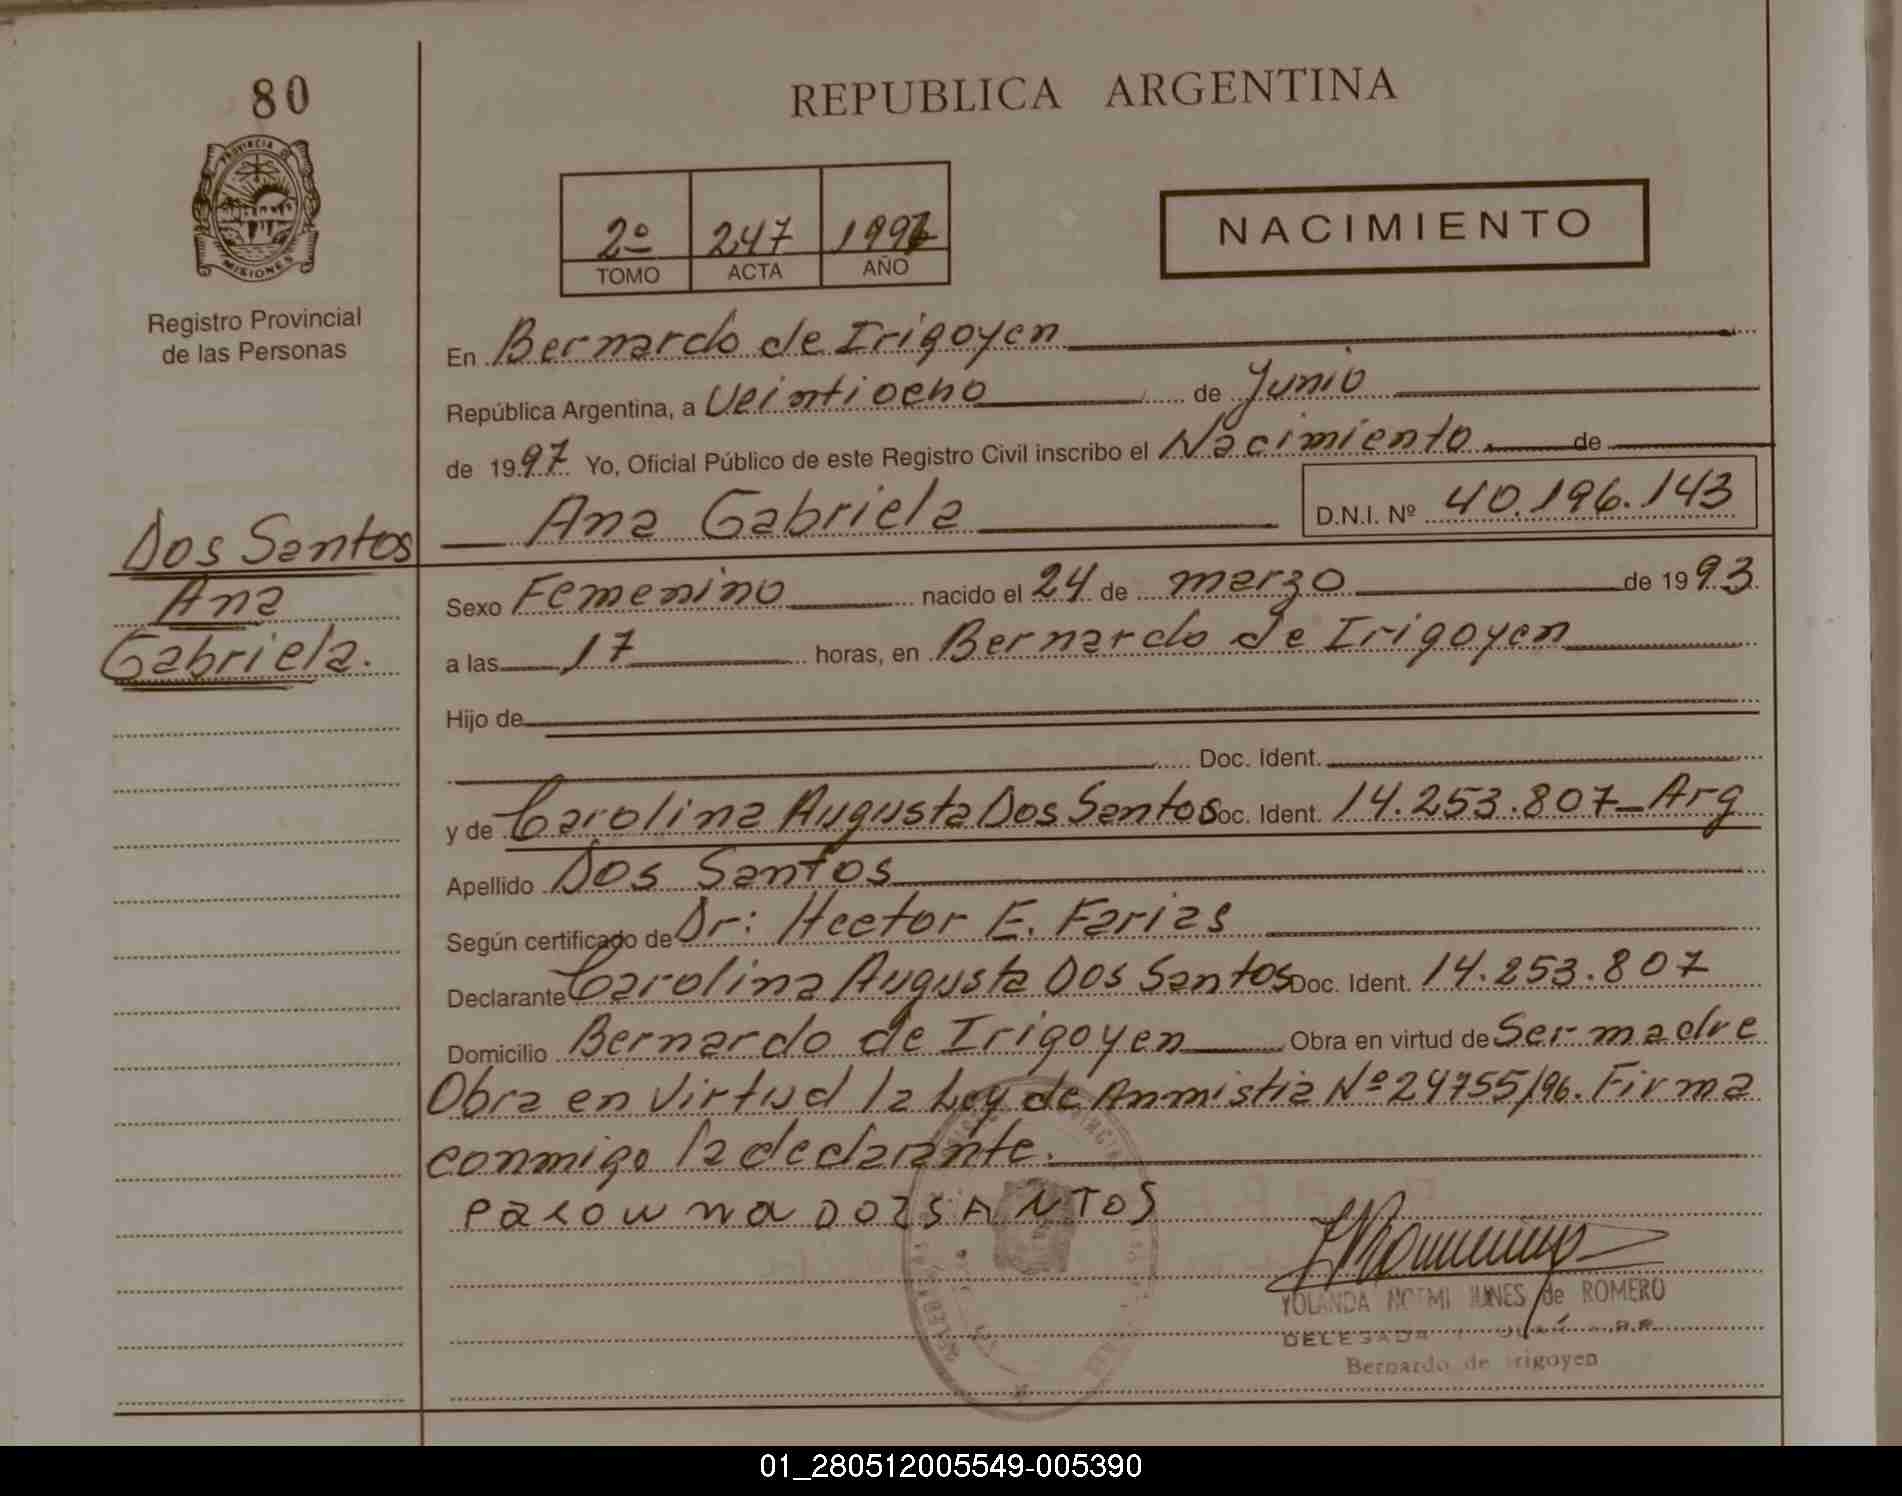 80
REPUBLICA ARGENTINA
PROVINCIA DE
MISIONES
Registro Provincial
de las Personas
2º 247 1997
TOMO ACTA AÑO
NACIMIENTO
En Bernardo de Irigoyen
República Argentina, a Veintiocho de Junio
de 1997 Yo, Oficial Público de este Registro Civil inscribo el Nacimiento de
Ana Gabriela D.N.I. Nº 40.196.143
Dos Santos
Ana
Gabriela.
Sexo Femenino nacido el 24 de marzo de 1993
a las 17 horas, en Bernardo de Irigoyen
Hijo de
Doc. Ident.
y de Carolina Augusta Dos Santos Doc. Ident. 14.253.807 - Arg
Apellido Dos Santos
Según certificado de Dr: Hector E. Farias
Declarante Carolina Augusta Dos Santos Doc. Ident. 14.253.807
Domicilio Bernardo de Irigoyen Obra en virtud de Ser madre
Obra en virtud la Ley de Anmistia Nº 24755/96. Firma
conmigo la declarante.
DOZSANTOS
YOLANDA NOEMI de ROMERO
DELEGADA
Bernardo de Irigoyen
01_280512005549-005390